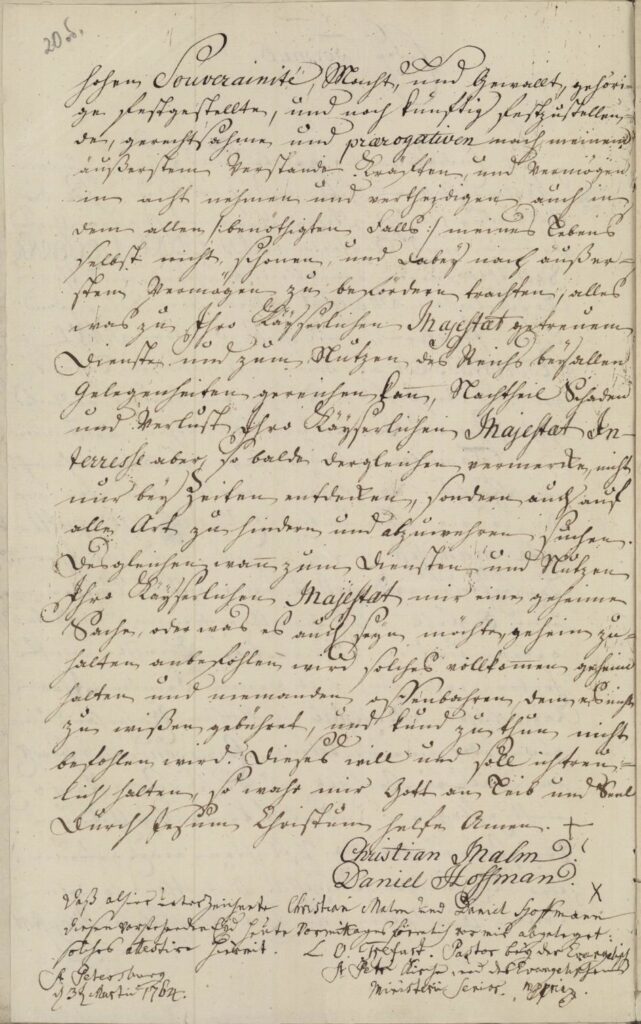 208.
hohen Souverainité, Macht, und Gewallt, gehöri-
ge festgestellte, und noch künftig festzustellen-
de, gerechtsahme und prærogativen nach meinem
äußerstem Verstande Kräfften, und Vermögen
in acht nehmen und vertheidigen, auch in
dem allen /:benöthigten Falls:/ meines Lebens
selbst nicht schonen, und dabey nach äußer-
stem Vermögen zu befördern trachten, alles
was zu Ihro Käyserlichen Majestät getreuem
Dienste und zum Nutzen des Reichs bey allen
Gelegenheiten gereichen kann, Nachtheil Schaden
und Verlust Ihro Käyserlichen Majestät In-
terresse aber, so balde dergleichen vermercke, nicht
nur bey Zeiten entdecken, sondern auch auf
alle Art zu hindern und abzuwehren suchen.
Desgleichen wann zum Diensten und Nutzen
Ihro Käyserlichen Majestät mir eine geheime
Sache, oder was es auch seyn möchte, geheim zu-
halten anbefohlen wird solches vollkommen geheim
halten und niemanden offenbahren, dem es nicht
zu wißen gebühret, und kund zu thun nicht
befohlen wird. Dieses will und soll ich treu-
lich halten, so wahr mir Gott an Leib und Seel
Durch Jesum Christum helfe Amen.
Christian Malm
Daniel Hoffman
Daß Christian Malm und Daniel Hoffmann
diesen vorstehenden Eyd heute Vormittages vor mir abgeleget
solches attestire hiemit. L. O. Trefurt. Pastor bey der Evangelisch
St Petri Kirche und des Evangelischen
St Petersburg
d 3t Martii 1764.
Ministerii Senior. mppria.